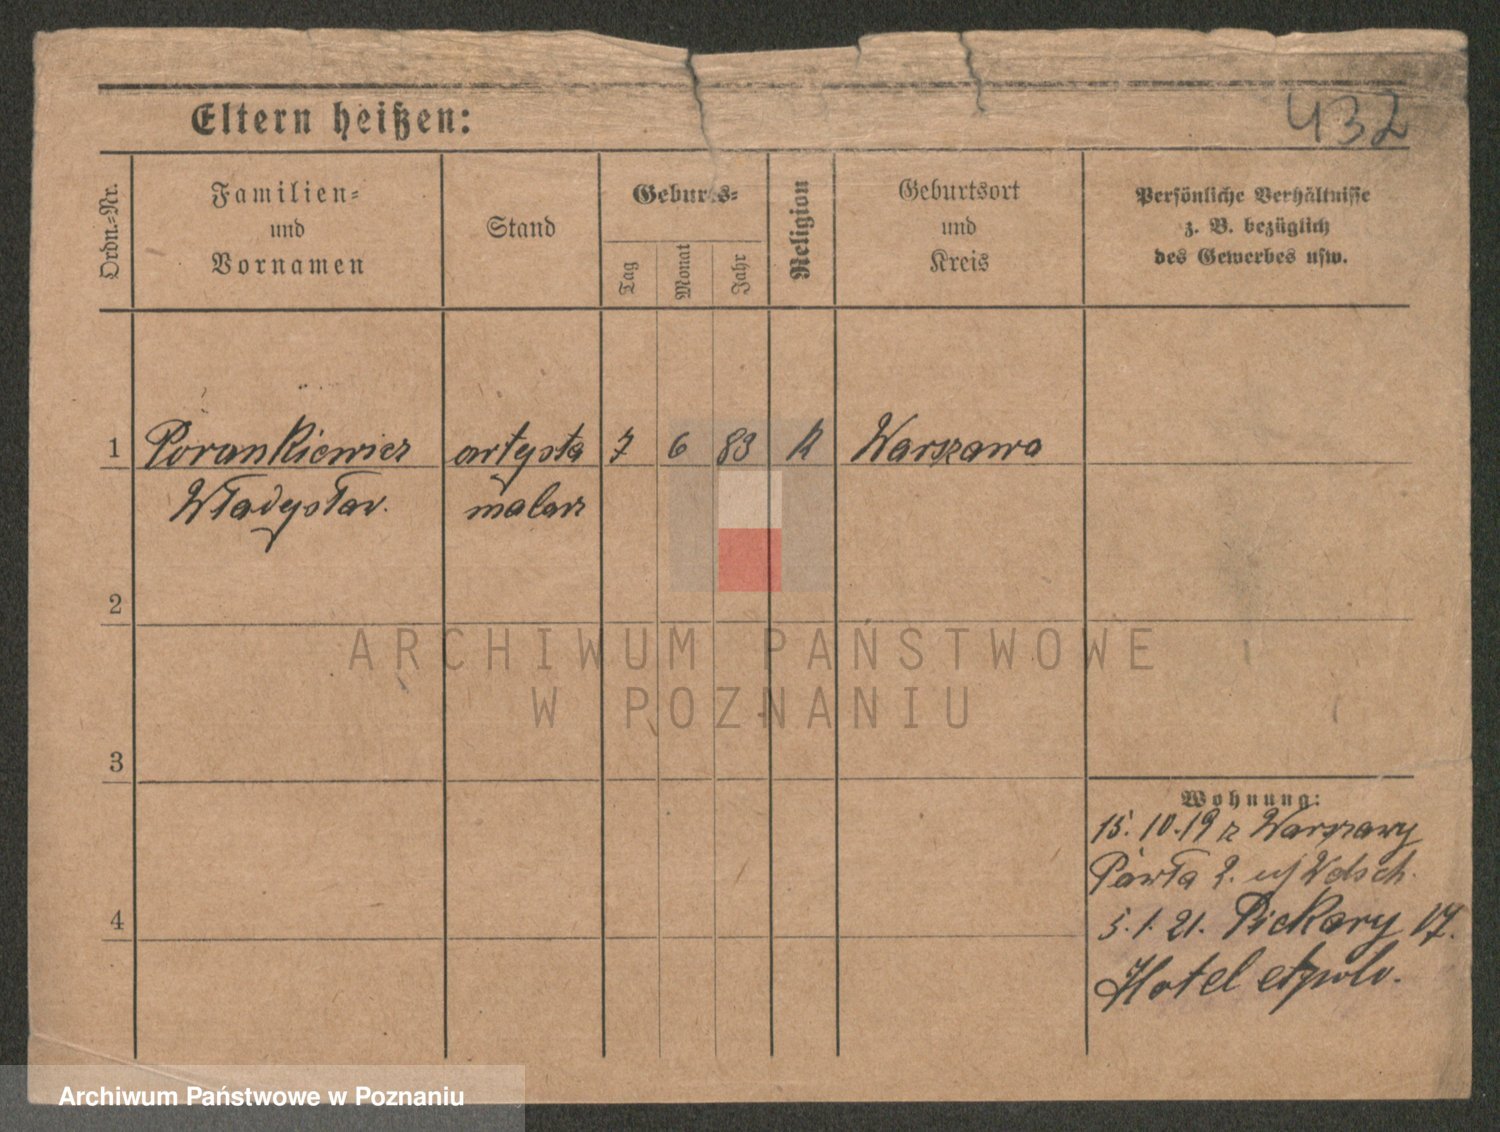 432
Eltern heißen:
Ordn.-Nr.
Familien-
und
Vornamen
Stand
Geburts-
Tag
Monat
Jahr
Religion
Geburtsort
und
Kreis
Persönliche Verhältnisse
z. B. bezüglich
des Gewerbes usw.
1 Porankiewicz artysta 7 6 83 K Warszawa
Władysław. malarz
2
ARCHIWUM PAŃSTWOWE
W POZNANIU
3
Wohnung:
15.10.19 z Warszawy
Pawła 2.
4
5.1.21. Piekary 17.
Hotel Apolo.
Archiwum Państwowe w Poznaniu